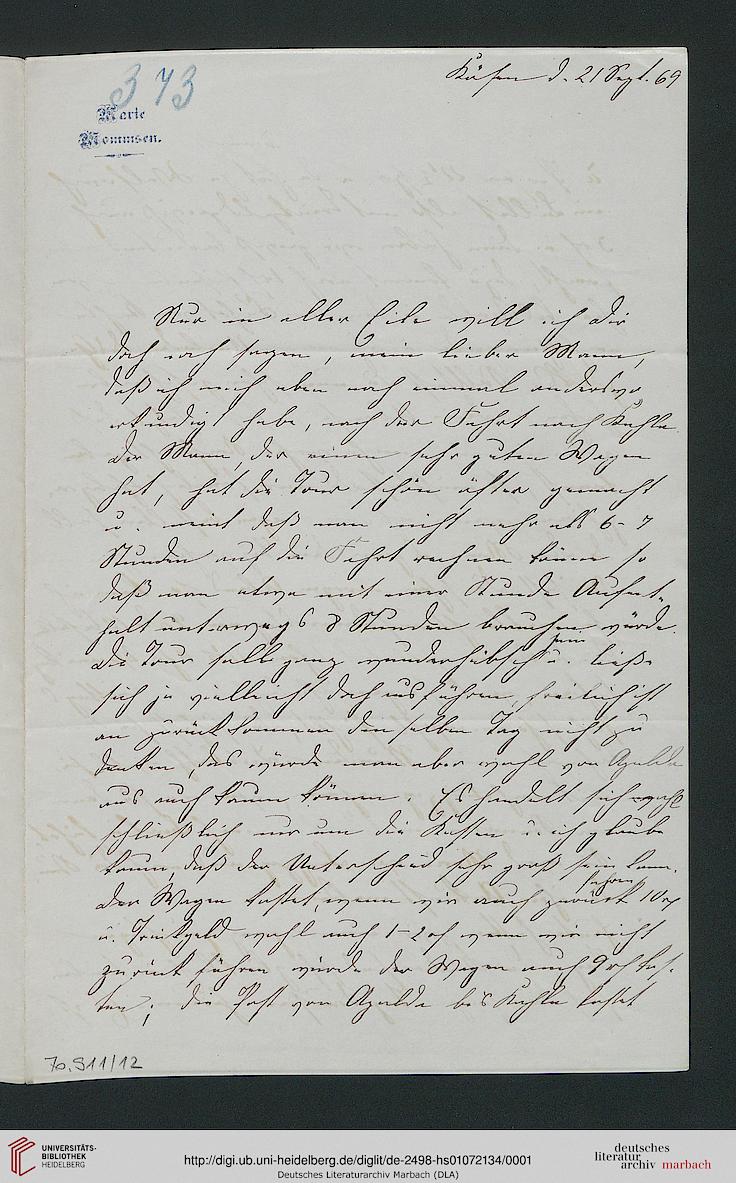 373
Kösen d. 21 Sept. 69
Marie
Mommsen.
Nur in aller Eile will ich dir
doch noch sagen, mein lieber Mann,
daß ich mich eben noch einmal anderswo
erkundigt habe, nach der Fahrt nach Kahla.
Der Mann, der einen sehr guten Wagen
hat, hat die Tour schon öfter gemacht
u. meint daß man nicht mehr als 6-7
Stunden auf die Fahrt rechnen könne so
daß man etwa mit einer Stunde Aufent-
halt unterwegs 8 Stunden brauchen würde.
Die Tour soll ganz wunderhübsch sein u. ließe
sich ja vielleicht doch ausführen, freilich ist
an zurückkommen denselben Tag nicht zu
denken, das würde man aber wohl von Apolda
aus auch kaum können. Es handelt sich wohl
schließlich nur um die Kosten u. ich glaube
kaum, daß der Unterschied sehr groß sein kann.
Der Wagen kostet, wenn wir auch zurück fahren 10
u. Trinkgeld wohl auch 1-2 wenn wir nicht
zurück führen würde der Wagen auch 9 kos-
ten; die Post von Apolda bis Kahla kostet
70.911/12
UNIVERSITÄTS-
BIBLIOTHEK
HEIDELBERG
http://digi.ub.uni-heidelberg.de/diglit/de-2498-hs01072134/0001
Deutsches Literaturarchiv Marbach (DLA)
deutsches
literatur
archiv marbach